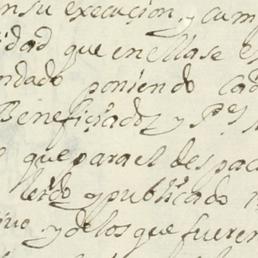 nsu execucion, y cum
idad que enellase es
ndado poniendo cad
Beneficiados y P.es
que para el despac
leido y publicado
y delos que fueren